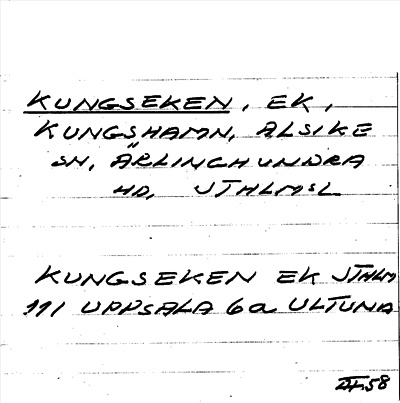 KUNGSEKEN, EK,
KUNGSHAMN, ALSIKE
SN, ÄRLINGHUNDRA
HD, STHLMSL
KUNGSEKEN EK STHLM
111 UPPSALA 6a ULTUNA
58